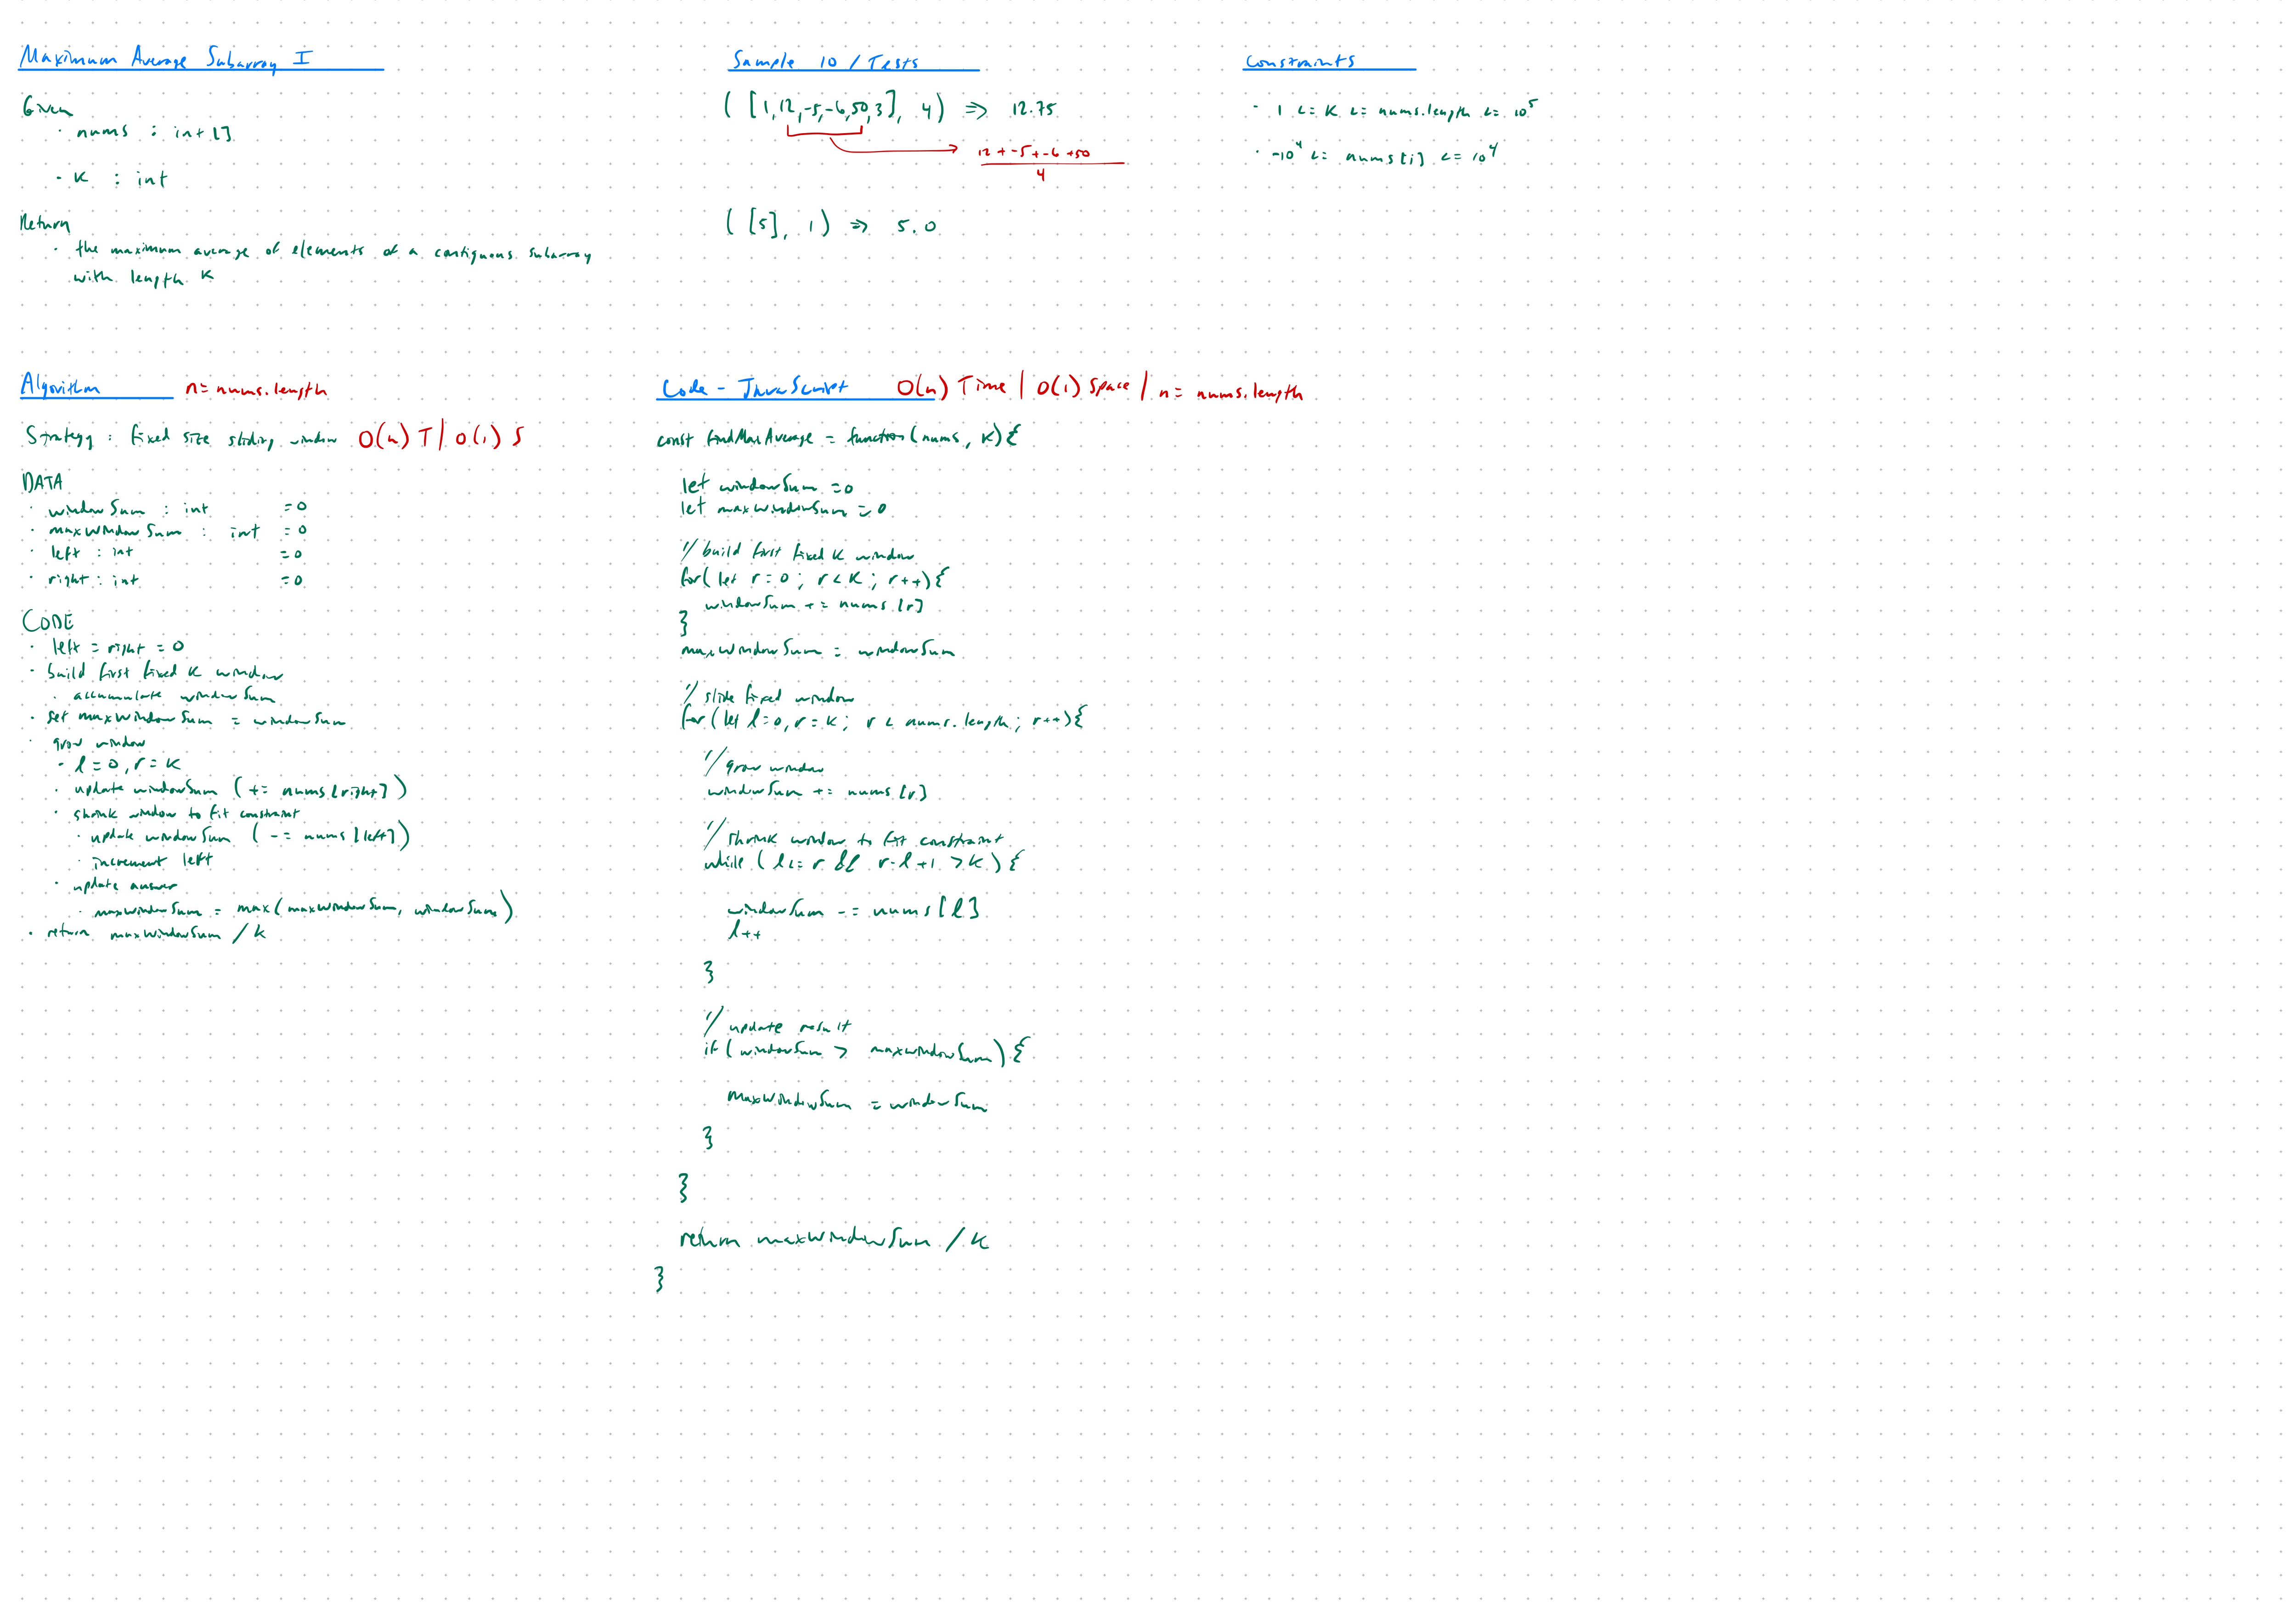 Maximum Average Subarray I
Given
· nums : int[]
· k : int
Return
· the maximum average of elements of a contiguous subarray
with length k
Sample IO / Tests
( [1,12,-5,-6,50,3], 4) => 12.75
12 + -5 + -6 + 50
4
( [5], 1 ) => 5.0
Constraints
· 1 <= k <= nums.length <= 10^5
· -10^4 <= nums[i] <= 10^4
Algorithm n = nums.length
Strategy : fixed size sliding window O(n) T | O(1) S
DATA
· windowSum : int = 0
· maxWindowSum : int = 0
· left : int = 0
· right : int = 0
CODE
· left = right = 0
· build first fixed k window
· accumulate windowSum
· set maxWindowSum = windowSum
· grow window
· l = 0, r = k
· update windowSum ( += nums[right] )
· shrink window to fit constraint
· update windowSum ( -= nums[left] )
· increment left
· update answer
· maxWindowSum = max( maxWindowSum, windowSum )
· return maxWindowSum / k
Code - JavaScript O(n) Time | O(1) Space | n = nums.length
const findMaxAverage = function(nums, k){
let windowSum = 0
let maxWindowSum = 0
// build first fixed k window
for( let r = 0 ; r < k ; r++){
windowSum += nums[r]
}
maxWindowSum = windowSum
// slide fixed window
for (let l=0, r = k ; r < nums.length ; r++){
// grow window
windowSum += nums[r]
// shrink window to fit constraint
while ( l <= r && r - l + 1 > k ) {
windowSum -= nums[l]
l++
}
// update result
if ( windowSum > maxWindowSum ) {
maxWindowSum = windowSum
}
}
return maxWindowSum / k
}